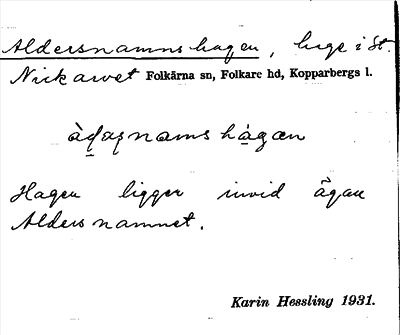 Aldersnamnshagen, hage i St.
Nickarvet Folkärna sn, Folkare hd, Kopparbergs l.
àḍaṣnams hágæn
Hagen ligger invid ägan
Aldersnamnet.
Karin Hessling 1931.